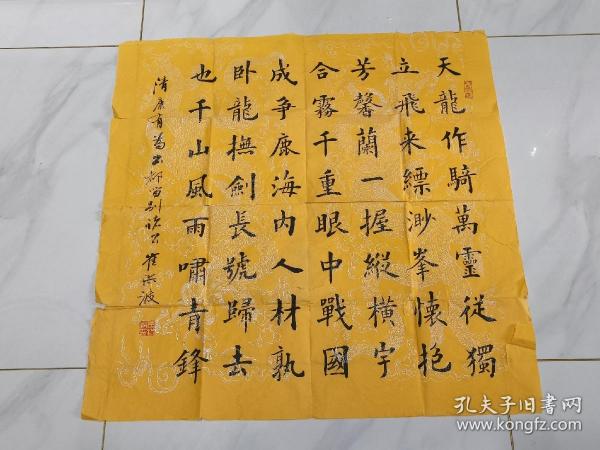 天龍作騎萬靈從獨
立飛来縹渺峯懷抱
芳馨蘭一握縱橫宇
合霧千重眼中戰國
成争鹿海內人材孰
卧龍撫劍長號歸去
也千山風雨嘯青鋒
清康有為出都留别諸公 崔洪波
孔夫子旧书网
www.kongfz.com